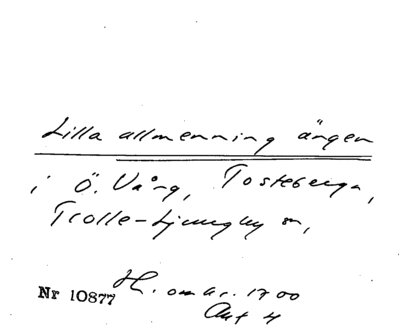 Lilla allmenning ängen
i Ö. Vång, Tosteberga,
Trolle-Ljungby sn,
Nr 10877 H. omkr. 1700
Akt 4